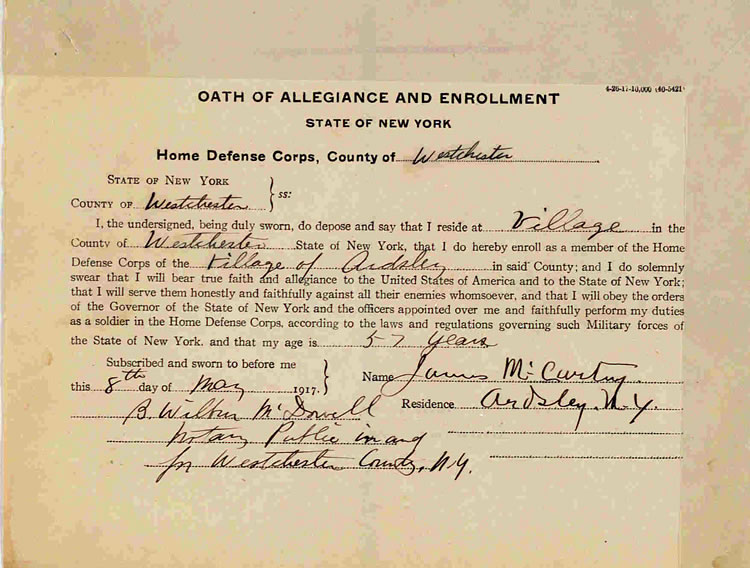 4-26-17-10,000 (40-5421)
OATH OF ALLEGIANCE AND ENROLLMENT
STATE OF NEW YORK
Home Defense Corps, County of Westchester
STATE OF NEW YORK
COUNTY OF Westchester } ss:
I, the undersigned, being duly sworn, do depose and say that I reside at Village in the
County of Westchester State of New York, that I do hereby enroll as a member of the Home
Defense Corps of the Village of Ardsley in said County; and I do solemnly
swear that I will bear true faith and allegiance to the United States of America and to the State of New York;
that I will serve them honestly and faithfully against all their enemies whomsoever, and that I will obey the orders
of the Governor of the State of New York and the officers appointed over me and faithfully perform my duties
as a soldier in the Home Defense Corps, according to the laws and regulations governing such Military forces of
the State of New York. and that my age is 57 years
Subscribed and sworn to before me
this 8th day of May 1917. }
Name James McCartny
Residence Ardsley. N.Y.
B. Wilbur McDowell
Notary Public in and
for Westchester County, N.Y.